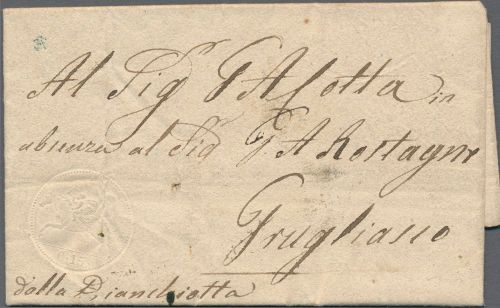 Al Sig.r G A Cotta in
absenza al Sig G A Rostagno
Grugliasco
dalla Bianchiotta